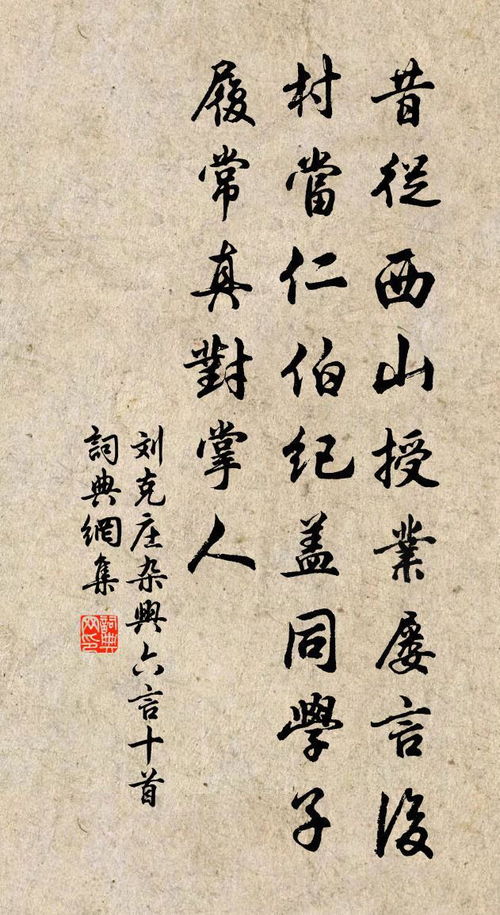 昔從西山授業屢言後
村當仁伯紀盖同學子
履常真對掌人
刘克庄杂興六言十首
詞典網集
詞典网印